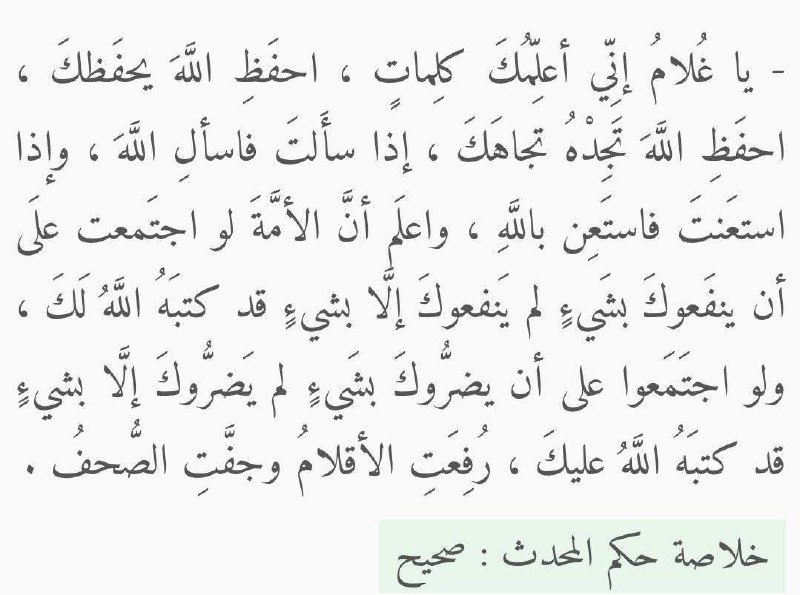 - يا غُلامُ إنِّي أعلِّمُكَ كلِماتٍ ، احفَظِ اللَّهَ يحفَظكَ ،
احفَظِ اللَّهَ تَجِدْهُ تجاهَكَ ، إذا سأَلتَ فاسألِ اللَّهَ ، وإذا
استعَنتَ فاستَعِن باللَّهِ ، واعلَم أنَّ الأمَّةَ لو اجتَمعت علَى
أن ينفَعوكَ بشَيءٍ لم يَنفعوكَ إلَّا بشيءٍ قد كتبَهُ اللَّهُ لَكَ ،
ولو اجتَمَعوا على أن يضرُّوكَ بشَيءٍ لم يَضرُّوكَ إلَّا بشيءٍ
قد كتبَهُ اللَّهُ عليكَ ، رُفِعَتِ الأقلامُ وجفَّتِ الصُّحفُ .
خلاصة حكم المحدث : صحيح